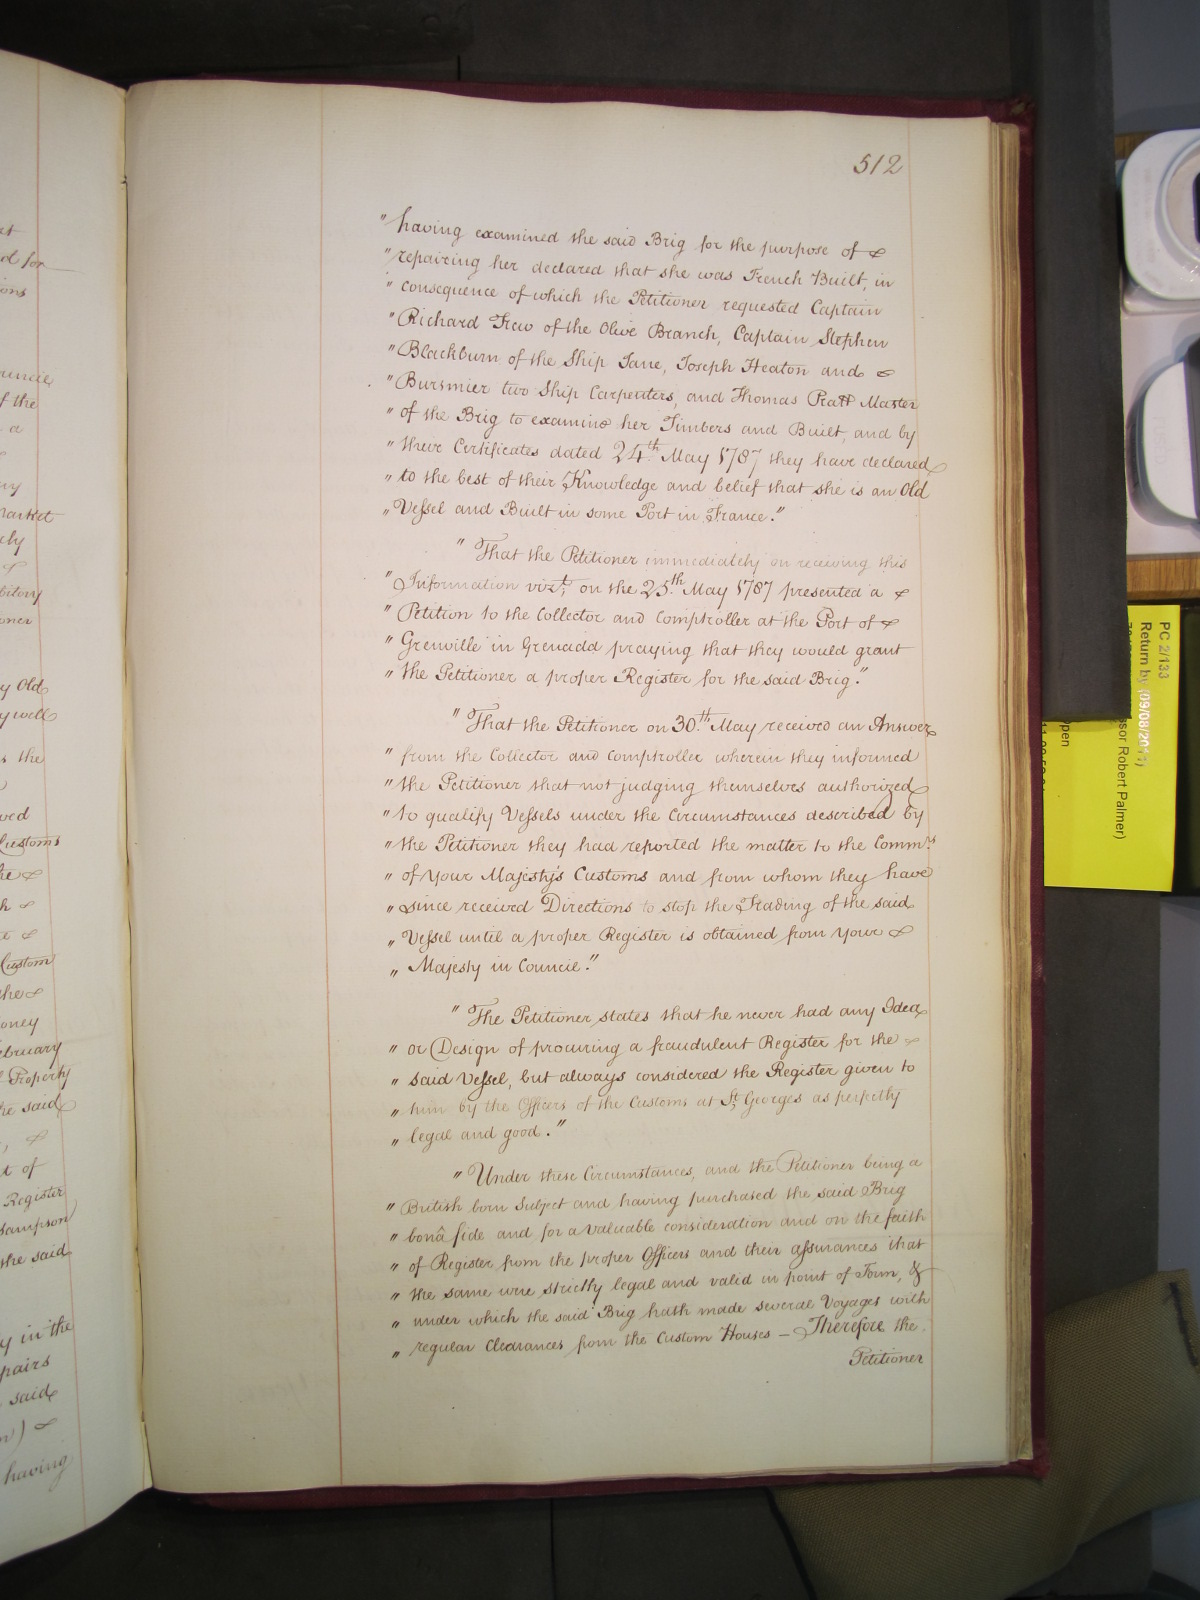 512
" having examined the said Brig for the purpose of
" repairing her declared that she was French Built, in
" consequence of which the Petitioner requested Captain
" Richard Frew of the Olive Branch, Captain Stephen
" Blackburn of the Ship Jane, Joseph Heaton and
" Bursmier two Ship Carpenters, and Thomas Pratt Master
" of the Brig to examine her Timbers and Built, and by
" their Certificates dated 24th May 1787 they have declared
" to the best of their Knowledge and belief that she is an Old
" Vessel and Built in some Port in France."
" That the Petitioner immediately on receiving this
" Information vizt. on the 25th May 1787 presented a
" Petition to the Collector and Comptroller at the Port of
" Grenville in Grenada praying that they would grant
" the Petitioner a proper Register for the said Brig."
" That the Petitioner on 30th May received an Answer
" from the Collector and Comptroller wherein they informed
" the Petitioner that not judging themselves authorized
" to qualify Vessels under the Circumstances described by
" the Petitioner they had reported the matter to the Commrs
" of Your Majesty's Customs and from whom they have
" since received Directions to stop the Trading of the said
" Vessel until a proper Register is obtained from Your
" Majesty in Council."
" The Petitioner states that he never had any Idea
" or Design of procuring a fraudulent Register for the
" said Vessel, but always considered the Register given to
" him by the Officers of the Customs at St. Georges as perfectly
" legal and good."
" Under these Circumstances, and the Petitioner being a
" British born Subject and having purchased the said Brig
" bonâ fide and for a valuable consideration and on the faith
" of Register from the proper Officers and their assurances that
" the same were strictly legal and valid in point of Form, &
" under which the said Brig hath made several Voyages with
" regular Clearances from the Custom Houses — Therefore the
Petitioner
PC 2/133
Return by (09/08/2011)
ssor Robert Palmer)
ppen